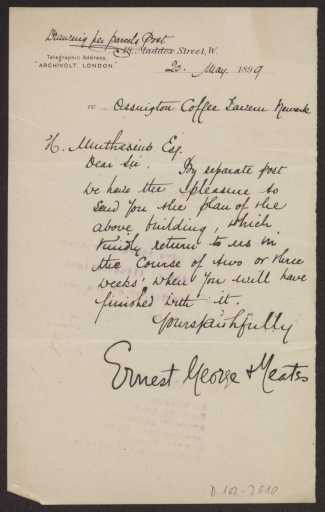 Drawing per parcels Post
18, Maddox Street, W.
Telegraphic Address,
"ARCHIVOLT, LONDON"
20 May 1899
re Ossington Coffee Tavern Newark
H. Muthesius Esq.
Dear Sir. By separate post
we have the pleasure to
send you the plan of the
above building, which
kindly return to us in
the course of two or three
weeks, when you will have
finished with it.
Yours faithfully
Ernest George & Yeates
D 102-2610